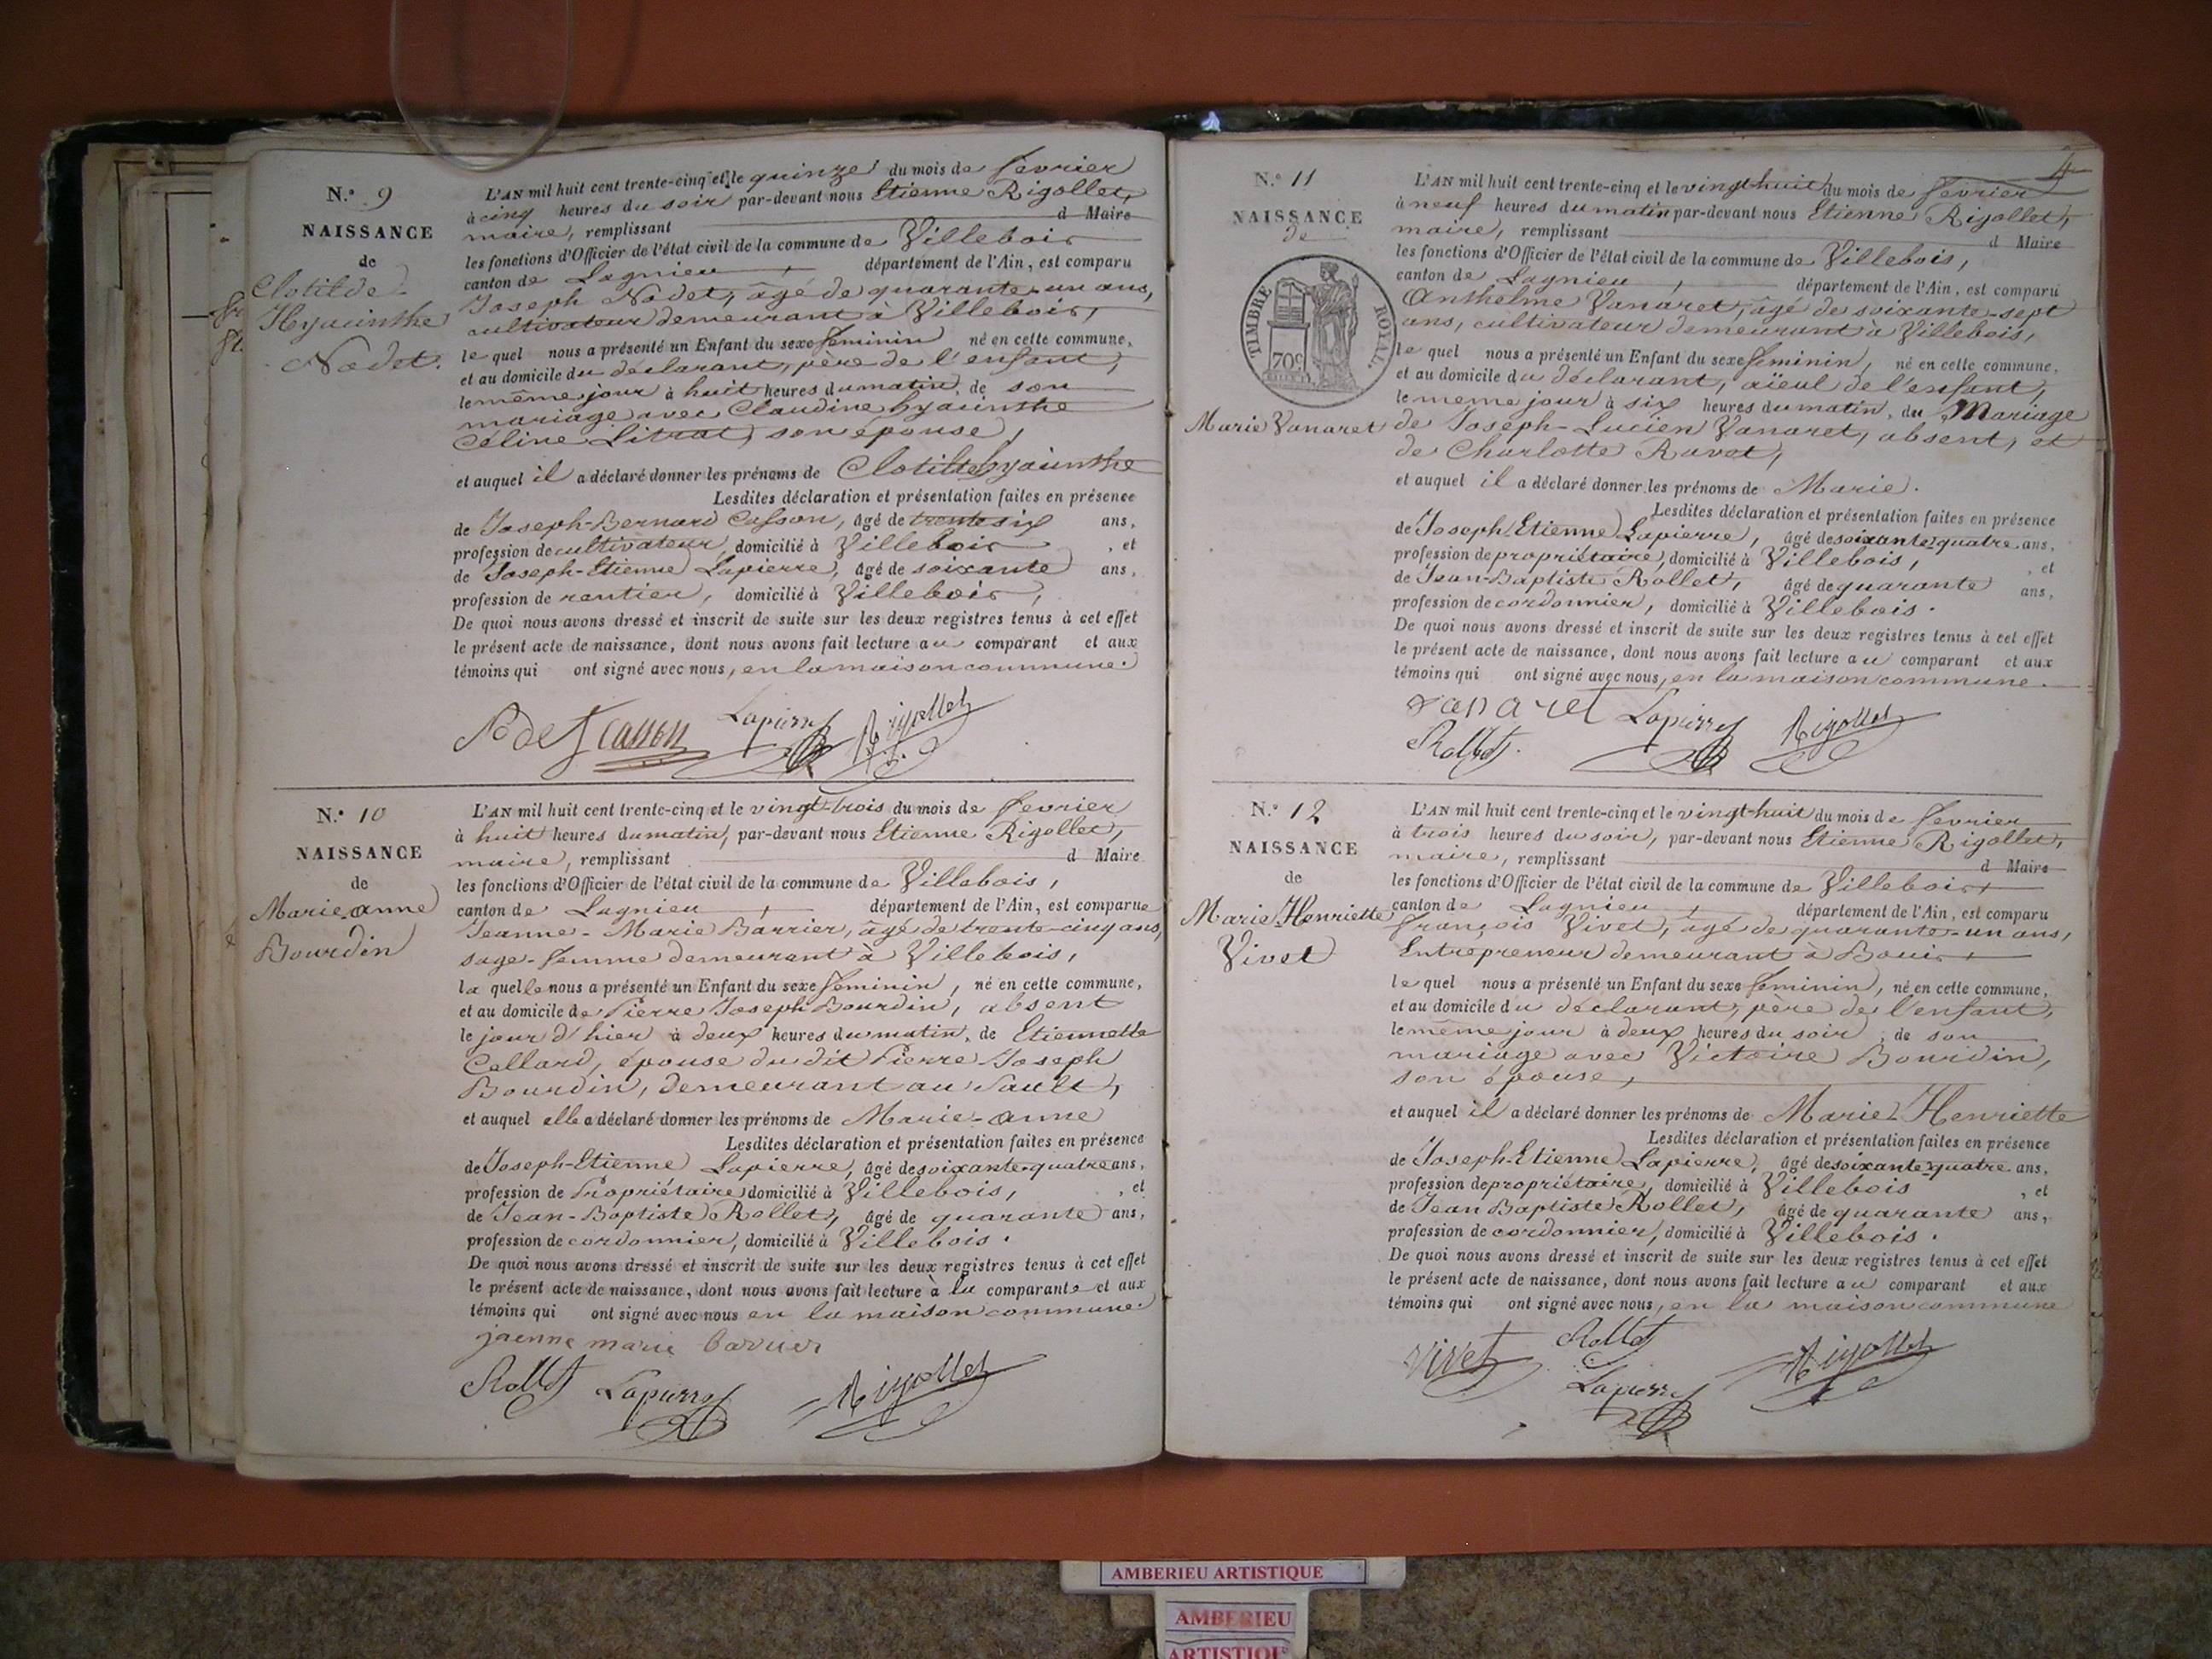 N.° 9
NAISSANCE
de
Clotilde
Hyacinthe
Nodet.
L'AN mil huit cent trente-cinq et le quinze du mois de février
à cinq heures du soir par-devant nous Etienne Rigollet,
maire, remplissant d Maire
les fonctions d'Officier de l'état civil de la commune de Villebois
canton de Lagnieu, département de l'Ain, est comparu
Joseph Nodet, âgé de quarante-un ans,
cultivateur demeurant à Villebois,
le quel nous a présenté un Enfant du sexe féminin né en cette commune,
et au domicile du déclarant, père de l'enfant,
le même jour à huit heures du matin, de son
mariage avec Claudine hyacinthe
Céline Litrat, son épouse,
et auquel il a déclaré donner les prénoms de Clotilde hyacinthe
Lesdites déclaration et présentation faites en présence
de Joseph-Bernard Casson, âgé de trente six ans,
profession de cultivateur, domicilié à Villebois, et
de Joseph-Etienne Lapierre, âgé de soixante ans,
profession de rentier, domicilié à Villebois,
De quoi nous avons dressé et inscrit de suite sur les deux registres tenus à cet effet
le présent acte de naissance, dont nous avons fait lecture au comparant et aux
témoins qui ont signé avec nous, en la maison commune.
Lapierre Rigollet
N.° 10
NAISSANCE
de
Marie-anne
Bourdin
L'AN mil huit cent trente-cinq et le vingt-trois du mois de fevrier
à huit heures du matin, par-devant nous Etienne Rigollet,
maire, remplissant d Maire
les fonctions d'Officier de l'état civil de la commune de Villebois,
canton de Lagnieu, département de l'Ain, est comparue
Jeanne-Marie Barrier, âgé de trente-cinq ans,
sage-femme demeurant à Villebois,
la quelle nous a présenté un Enfant du sexe féminin, né en cette commune,
et au domicile de Pierre Joseph Bourdin, absent
le jour d'hier à deux heures du matin, de Etiennette
Collard, épouse du dit Pierre Joseph
Bourdin, demeurant au Sault,
et auquel elle a déclaré donner les prénoms de Marie-anne
Lesdites déclaration et présentation faites en présence
de Joseph-Etienne Lapierre, âgé de soixante-quatre ans,
profession de Propriétaire domicilié à Villebois, , et
de Jean-Baptiste Rollet, âgé de quarante ans,
profession de cordonnier, domicilié à Villebois.
De quoi nous avons dressé et inscrit de suite sur les deux registres tenus à cet effet
le présent acte de naissance, dont nous avons fait lecture à la comparante et aux
témoins qui ont signé avec nous en la maison commune.
jaenne marie barrier
Rollet Lapierre Rigollet
4
N.° 11
NAISSANCE
de
TIMBRE ROYAL
70c
Marie Vanaret
L'AN mil huit cent trente-cinq et le vingt-huit du mois de février
à neuf heures du matin par-devant nous Etienne Rigollet,
maire, remplissant d Maire
les fonctions d'Officier de l'état civil de la commune de Villebois,
canton de Lagnieu, département de l'Ain, est comparu
Anthelme Vanaret, âgé de soixante-sept
ans, cultivateur demeurant à Villebois,
le quel nous a présenté un Enfant du sexe féminin, né en cette commune,
et au domicile du déclarant, aïeul de l'enfant,
le meme jour à six heures du matin, du Mariage
de Joseph-Lucien Vanaret, absent, et
de Charlotte Ravot,
et auquel il a déclaré donner les prénoms de Marie.
Lesdites déclaration et présentation faites en présence
de Joseph Etienne Lapierre, âgé de soixante-quatre ans,
profession de propriétaire, domicilié à Villebois, , et
de Jean-Baptiste Rollet, âgé de quarante ans,
profession de cordonnier, domicilié à Villebois.
De quoi nous avons dressé et inscrit de suite sur les deux registres tenus à cet effet
le présent acte de naissance, dont nous avons fait lecture au comparant et aux
témoins qui ont signé avec nous, en la maison commune.
vanaret Lapierre Rigollet
Rollet.
N.° 12
NAISSANCE
de
Marie-Henriette
Vivet
L'AN mil huit cent trente-cinq et le vingt-huit du mois de fevrier
à trois heures du soir, par-devant nous Etienne Rigollet,
maire, remplissant d Maire
les fonctions d'Officier de l'état civil de la commune de Villebois,
canton de Lagnieu, département de l'Ain, est comparu
françois Vivet, âgé de quarante-un ans,
Entrepreneur demeurant à Bouis,
le quel nous a présenté un Enfant du sexe féminin, né en cette commune,
et au domicile du déclarant, père de l'enfant,
le même jour à deux heures du soir, de son
mariage avec Victoire Bourdin,
son épouse,
et auquel il a déclaré donner les prénoms de Marie-Henriette
Lesdites déclaration et présentation faites en présence
de Joseph-Etienne Lapierre, âgé de soixante-quatre ans,
profession de propriétaire, domicilié à Villebois , et
de Jean Baptiste Rollet, âgé de quarante ans,
profession de cordonnier, domicilié à Villebois.
De quoi nous avons dressé et inscrit de suite sur les deux registres tenus à cet effet
le présent acte de naissance, dont nous avons fait lecture au comparant et aux
témoins qui ont signé avec nous, en la maison commune
Vivet Rollet Rigollet
Lapierre
AMBERIEU ARTISTIQUE
AMBERIEU
ARTISTIQUE